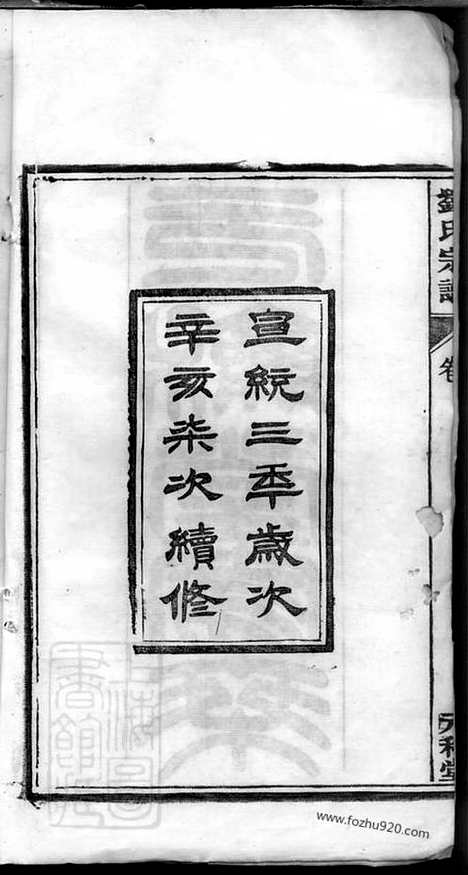 劉氏宗譜
卷
大和堂
宣統三年歲次
辛亥柒次續修
www.fozhu920.com